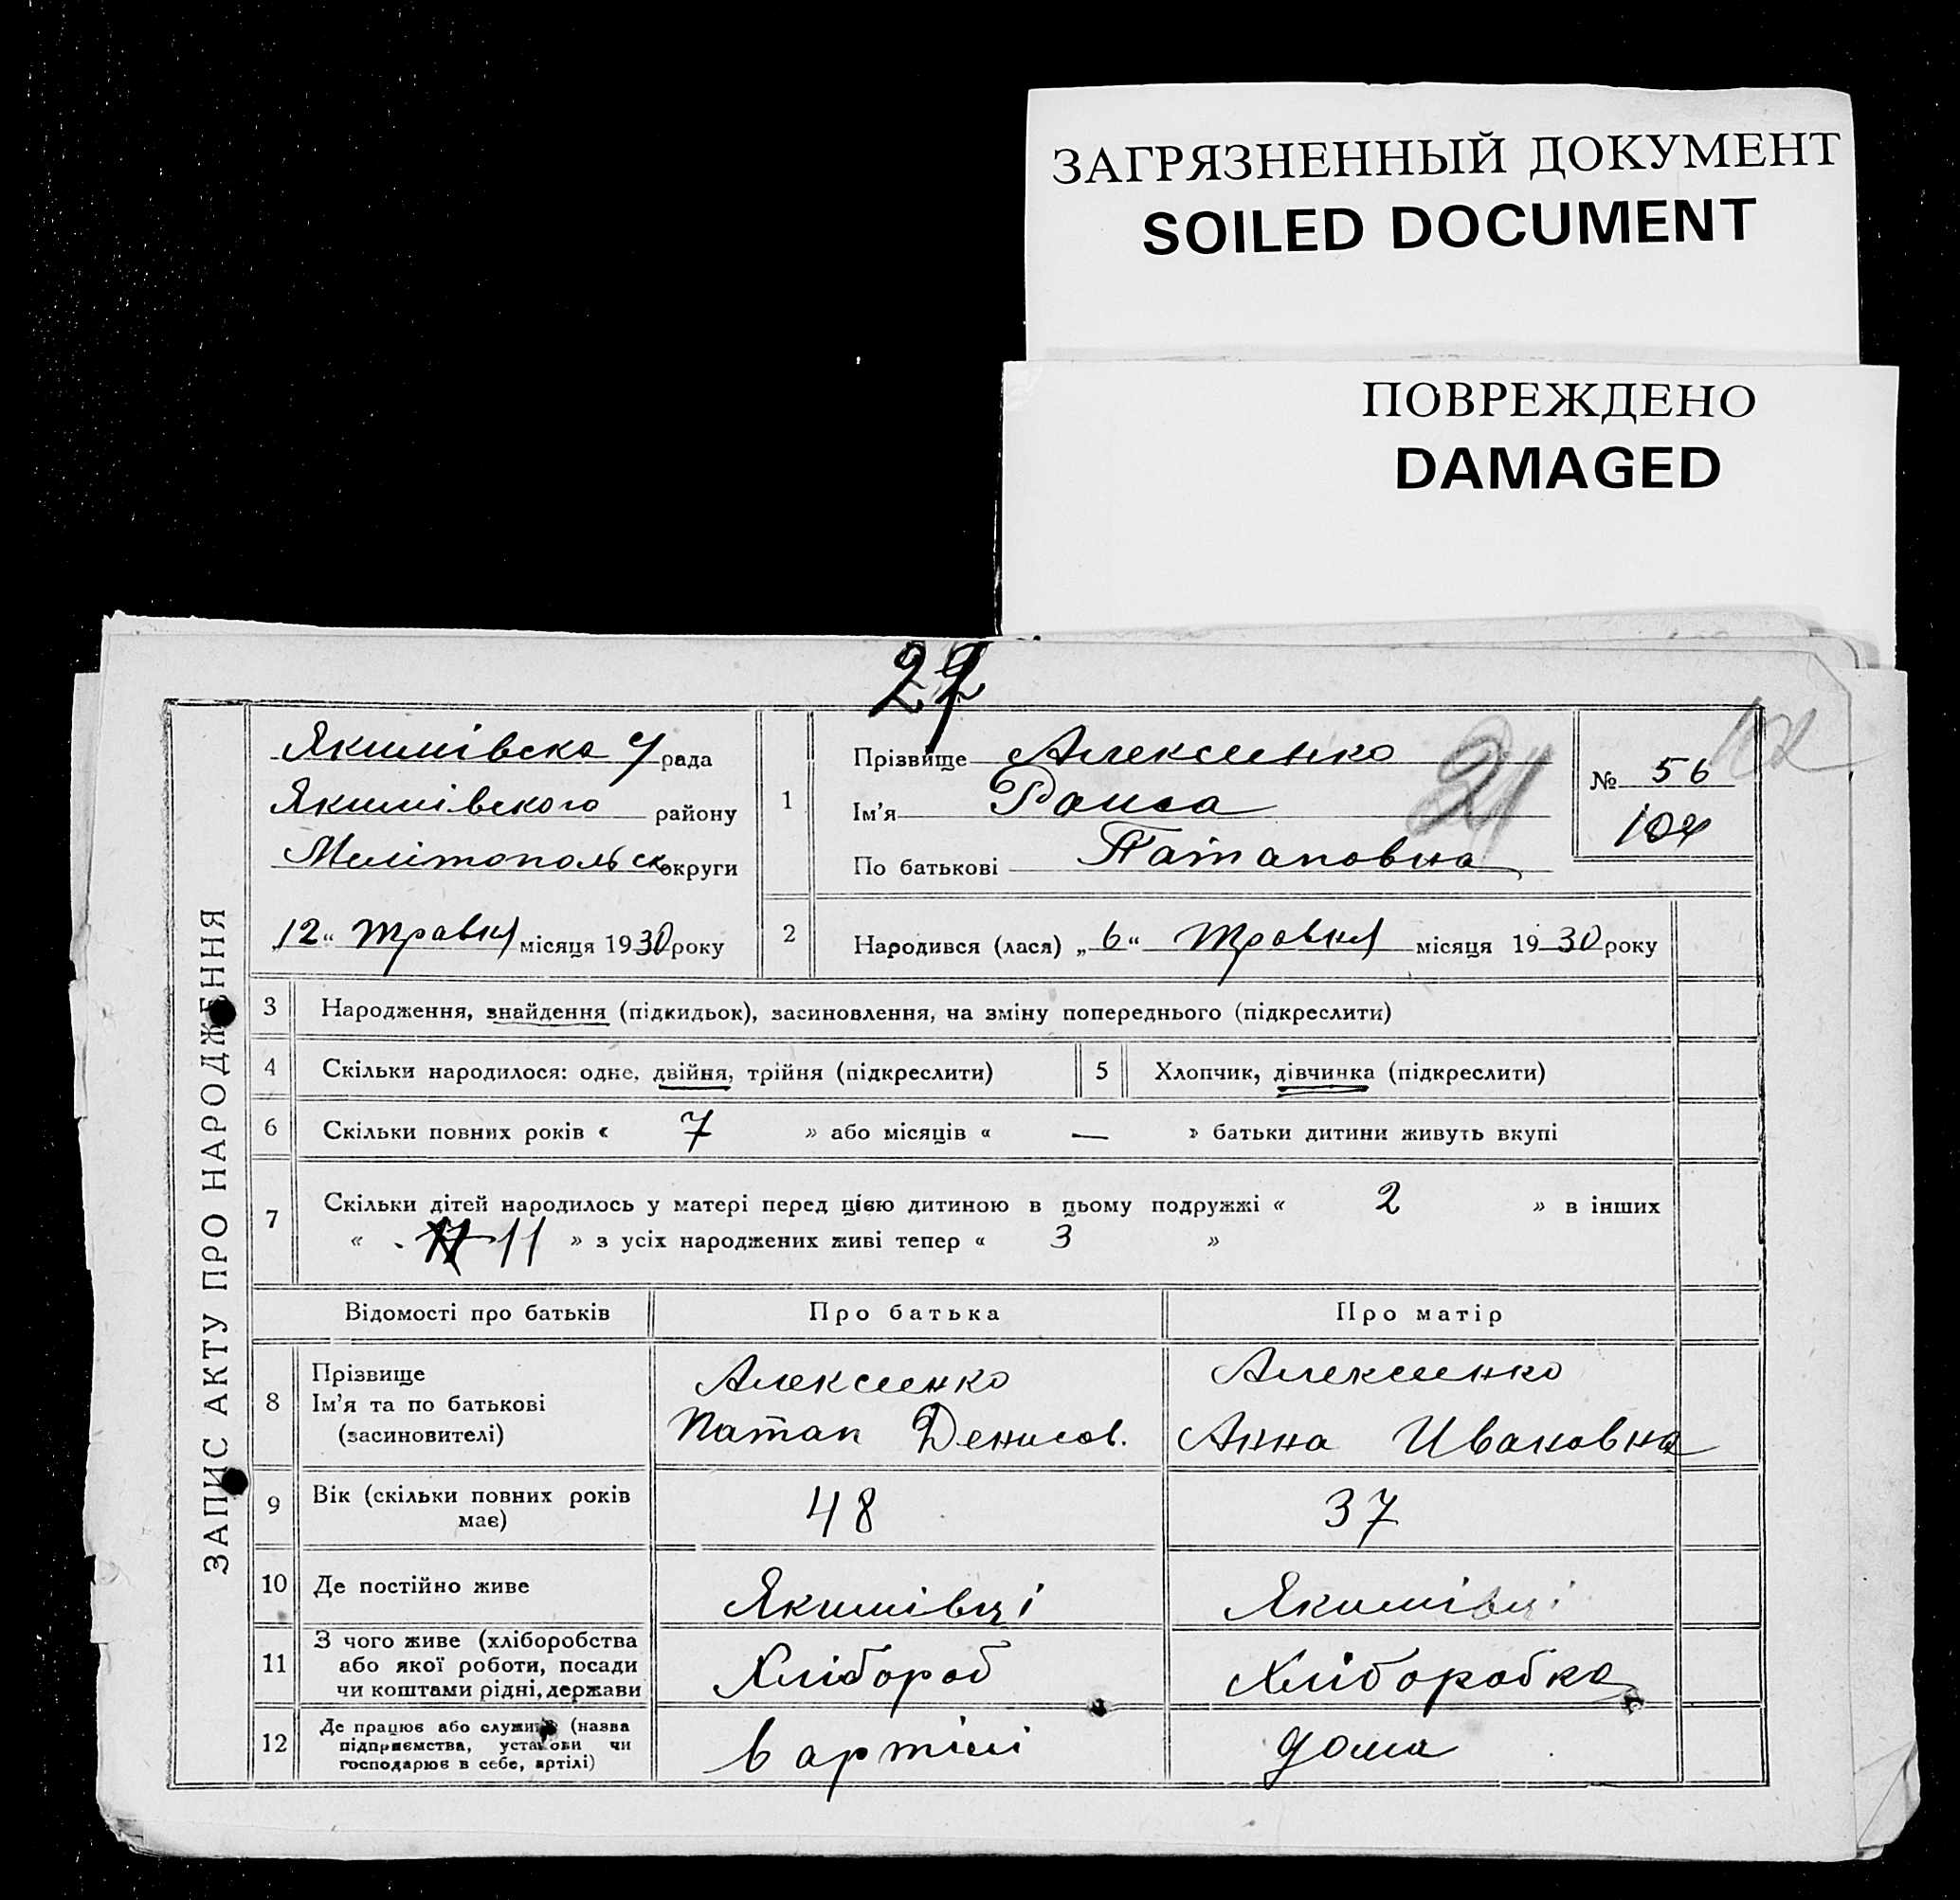 ЗАГРЯЗНЕННЫЙ ДОКУМЕНТ
SOILED DOCUMENT
ПОВРЕЖДЕНО
DAMAGED
27
ЗАПИС АКТУ ПРО НАРОДЖЕННЯ
Якимівска рада
Якимівского району
Мелітопольск округи
"12" травня місяця 1930 року
1
Прізвище Алексеенко
Ім'я Раиса
По батькові Патаповна
21
№ 56
104
102
2
Народився (лася) „6" травня місяця 1930 року
3 Народження, знайдення (підкидьок), засиновлення, на зміну попереднього (підкреслити)
4 Скільки народилося: одне, двійня, трійня (підкреслити) 5 Хлопчик, дівчинка (підкреслити)
6 Скільки повних років « 7 » або місяців « — » батьки дитини живуть вкупі
7 Скільки дітей народилось у матері перед цією дитиною в цьому подружжі « 2 » в інших
« 11 » з усіх народжених живі тепер « 3 »
Відомості про батьків Про батька Про матір
8 Прізвище
Ім'я та по батькові
(засиновителі)
Алексеенко
Патап Денисов.
Алексеенко
Анна Ивановна
9 Вік (скільки повних років
має)
48
37
10 Де постійно живе Якимівці Якимівці
11 З чого живе (хліборобства
або якої роботи, посади
чи коштами рідні, держави
Хлібороб
Хліборобка
12 Де працює або служить (назва
підприємства, установи чи
господарює в себе, артілі)
в артілі
дома